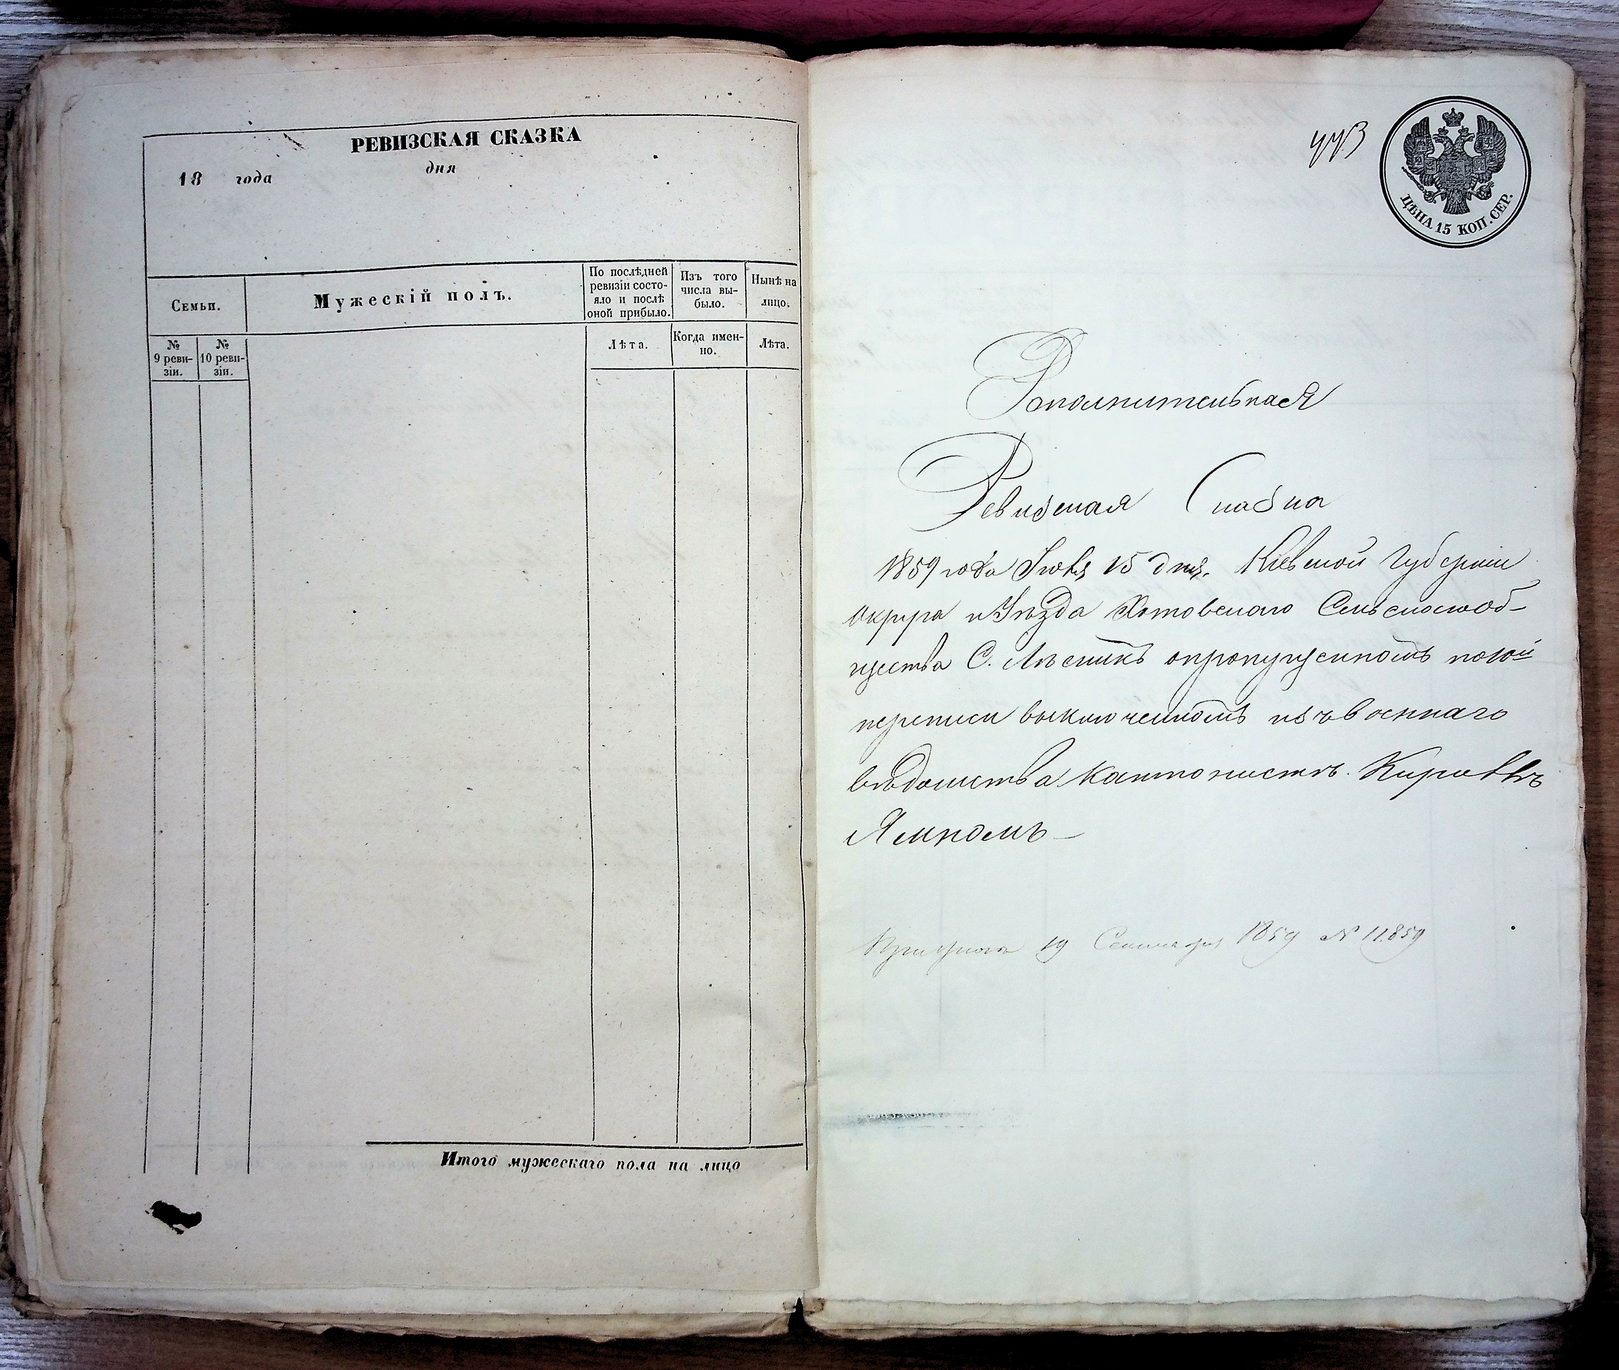 РЕВИЗСКАЯ СКАЗКА
18 года дня
Семьи.
Мужескій полъ.
По послѣдней ревизіи состояло и послѣ оной прибыло.
Изъ того числа выбыло.
Нынѣ на лицо.
№ 9 ревизіи.
№ 10 ревизіи.
Лѣта.
Когда именно.
Лѣта.
Итого мужескаго пола на лицо
ЦѢНА 15 КОП. СЕР.
Дополнительная
Ревизская Сказка
1859 года Іюля 15 дня. Кіевской Губерніи
Округа и Уѣзда Хотовскаго Сельскаго Об-
щества С. Лѣсникъ о пропущенномъ по 10й
переписи выключенномъ изъ военнаго
вѣдомства Кантонистѣ.
19 Сентября 1859 № 11859